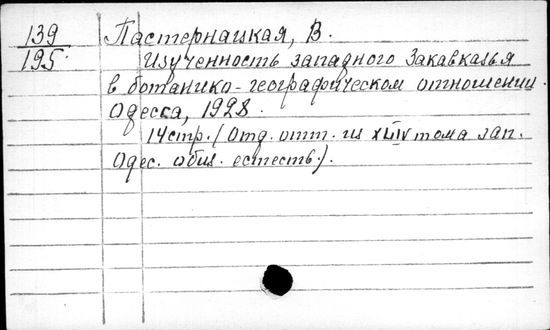 139 Пастернацкая, В.
195. Изученность западного Закавказья
в ботанико-географическом отношении.
Одесса, 1928.
14 стр. (Отд. отт. из XLIV тома зап.
Одес. общ. естеств.).